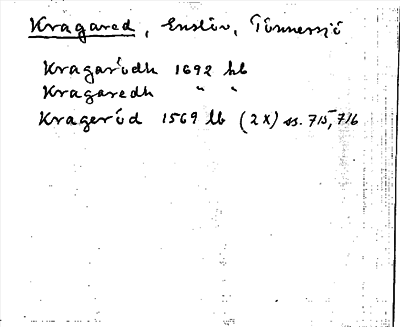 Kragared, Enslöv, Tönnersjö
Kragarödh 1692 hb
Kragaredh " "
Krageröd 1569 lb (2x) ss. 715, 716